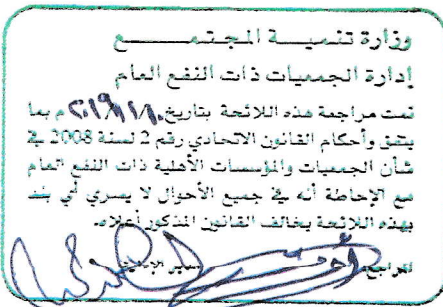 وزارة تنميـــة المجـتمـــــــع
إدارة الجمعيات ذات النفع العام
تمت مراجعة هذه اللائحة بتاريخ م بما
يتفق وأحكام القانون الاتحادي رقم 2 لسنة 2008 في
شأن الجمعيات والمؤسسات الأهلية ذات النفع العام
مع الإحاطة أنه في جميع الأحوال لا يسري أي بند
بهذه اللائحة يخالف القانون المذكور أعلاه.
المراجع مدير الإدارة